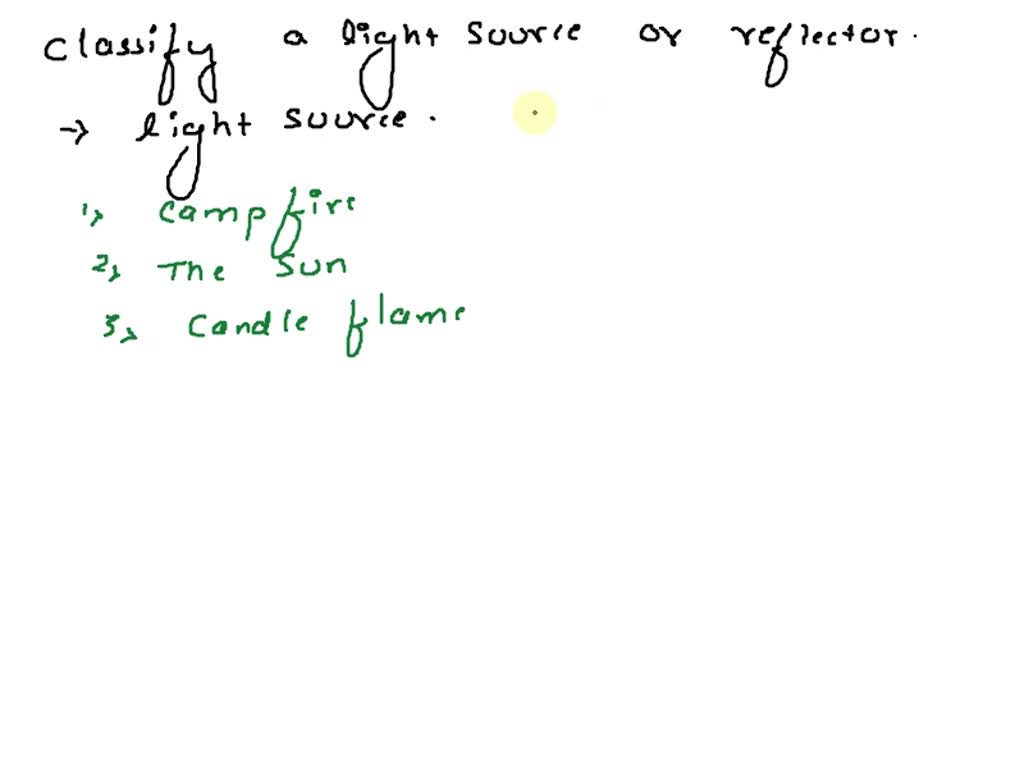 classify a light source or reflector.
→ light source.
1, campfire
2, The sun
3, candle flame